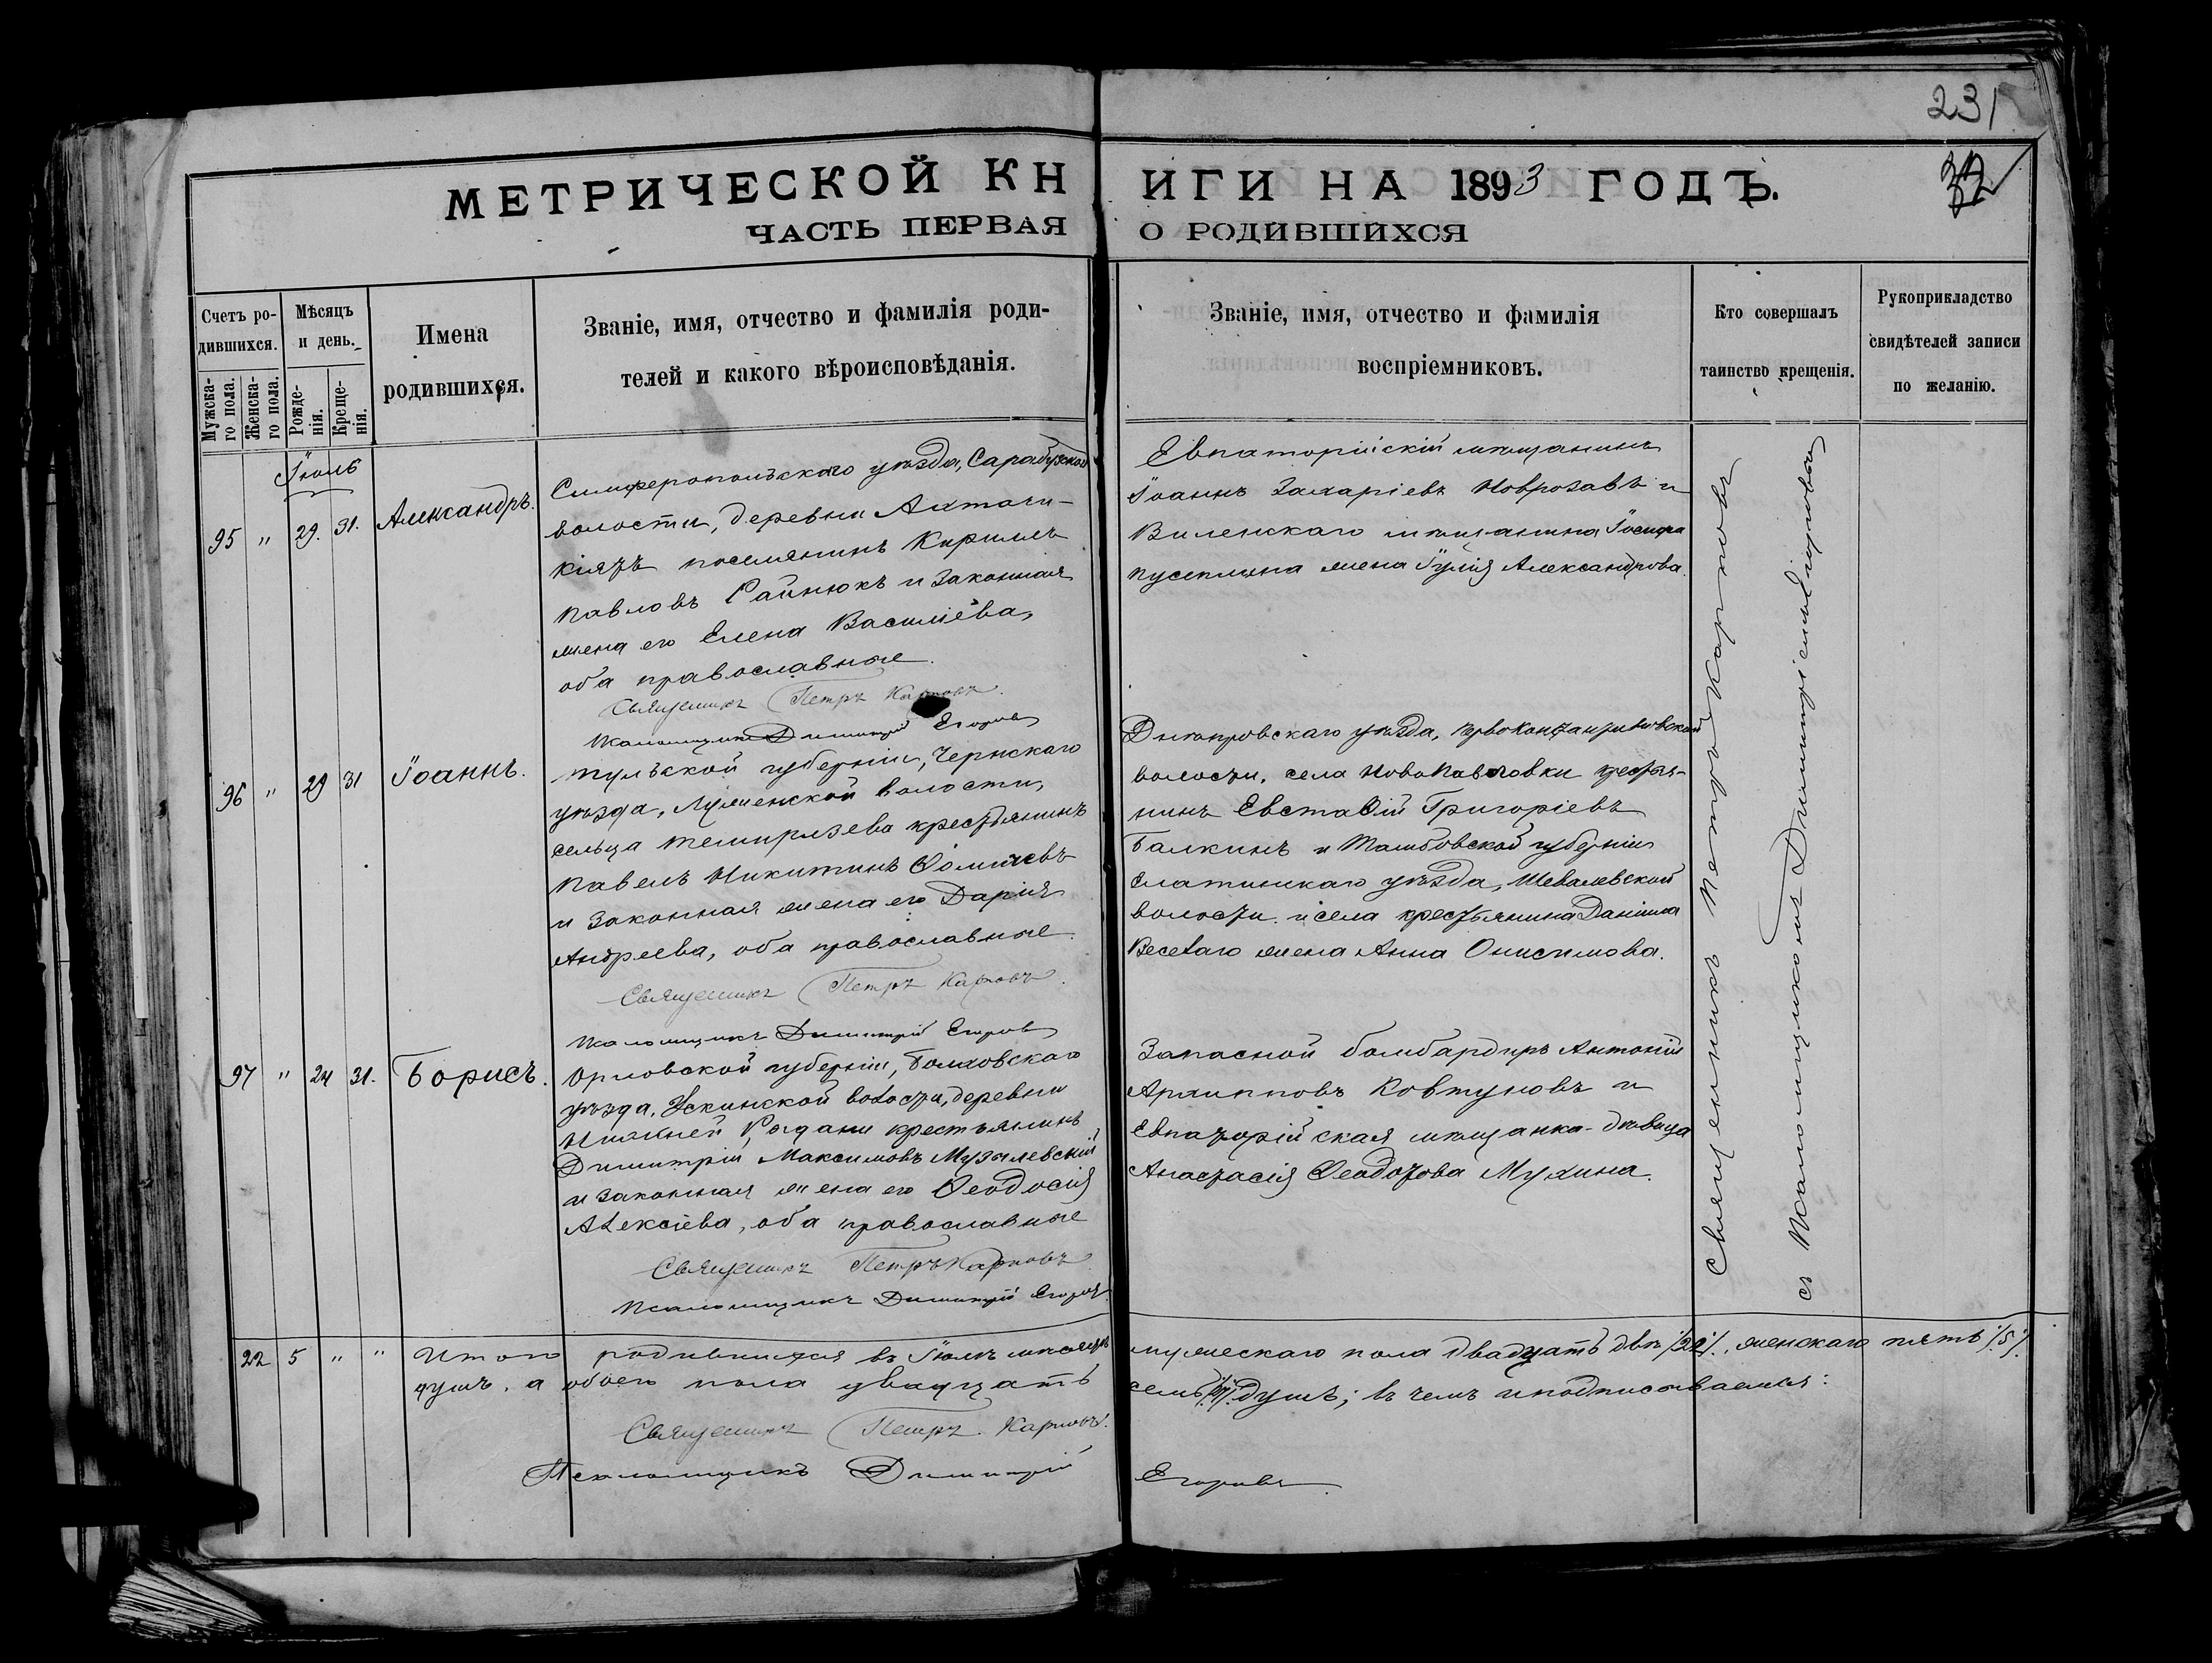 231
32
МЕТРИЧЕСКОЙ КНИГИ НА 1893 ГОДЪ.
ЧАСТЬ ПЕРВАЯ О РОДИВШИХСЯ
Счетъ ро-
дившихся.
Мужска-
го пола.
Женска-
го пола.
Мѣсяцъ
и день.
Рожде-
нія.
Креще-
нія.
Имена
родившихся.
Званіе, имя, отчество и фамилія роди-
телей и какого вѣроисповѣданія.
Званіе, имя, отчество и фамилія
воспріемниковъ.
Кто совершалъ
таинство крещенія.
Рукоприкладство
свидѣтелей записи
по желанію.
Іюль
95 " 29. 31. Александръ.
Симферопольскаго уѣзда, Сарабузской
волости, деревни Ахтачи-
Кіятъ поселянинъ Кириллъ
Павловъ Райнюкъ и законная
жена его Елена Василіева,
оба православные.
Священникъ Петръ Карповъ.
Псаломщикъ Димитрій Егоровъ
Евпаторійскій мѣщанинъ
Іоаннъ Захаріевъ и
Виленскаго мѣщанина Іосифа
жена Іулія Александрова.
96 " 29 31 Іоаннъ.
Тульской губерніи, Чернскаго
уѣзда, волости,
сельца Темирязева крестьянинъ
Павелъ Никитинъ Ѳомичевъ
и законная жена его Дарія
Андреева, оба православные.
Священникъ Петръ Карповъ.
Псаломщикъ Димитрій Егоровъ
Днѣпровскаго уѣзда, Первоконстантиновской
волости, села НовоПавловки крестья-
нинъ Евстафій Григоріевъ
Балкинъ и Тамбовской губерніи
Елатинскаго уѣзда,
волости и села крестьянина Даніила
Веселаго жена Анна Онисимова.
97 " 24 31. Борисъ.
Орловской губерніи, Болховскаго
уѣзда, волости, деревни
Нижней крестьянинъ
Димитрій Максимовъ Музалевскій
и законная жена его Ѳеодосія
Алексіева, оба православные
Священникъ Петръ Карповъ
Псаломщикъ Димитрій Егоровъ
Запасной бомбардиръ Антоній
Архипповъ Ковтуновъ и
Евпаторійская мѣщанка-дѣвица
Анастасія Ѳеодорова Мухина.
Священникъ Петръ Карповъ
съ Псаломщикомъ Димитріемъ Егоровымъ
22 5 " " Итого родившихся въ Іюлѣ мѣсяцѣ мужескаго пола двадцать два /22/, женскаго пять /5/
душъ, а обоего пола двадцать семь /27/ душъ; въ чемъ и подписываемся:
Священникъ Петръ Карповъ.
Псаломщикъ Димитрій Егоровъ.